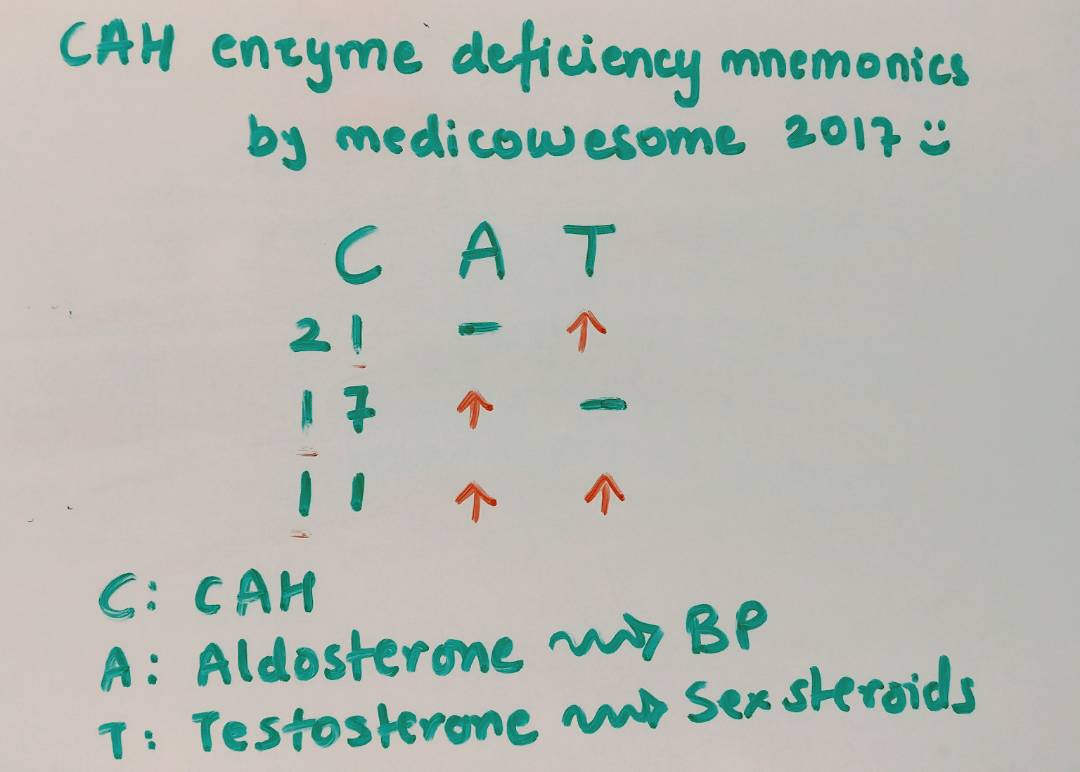 CAH enzyme deficiency mnemonics
by medicowesome 2017 :)
C A T
21 - ↑
17 ↑ -
11 ↑ ↑
C: CAH
A: Aldosterone → BP
T: Testosterone → Sex steroids